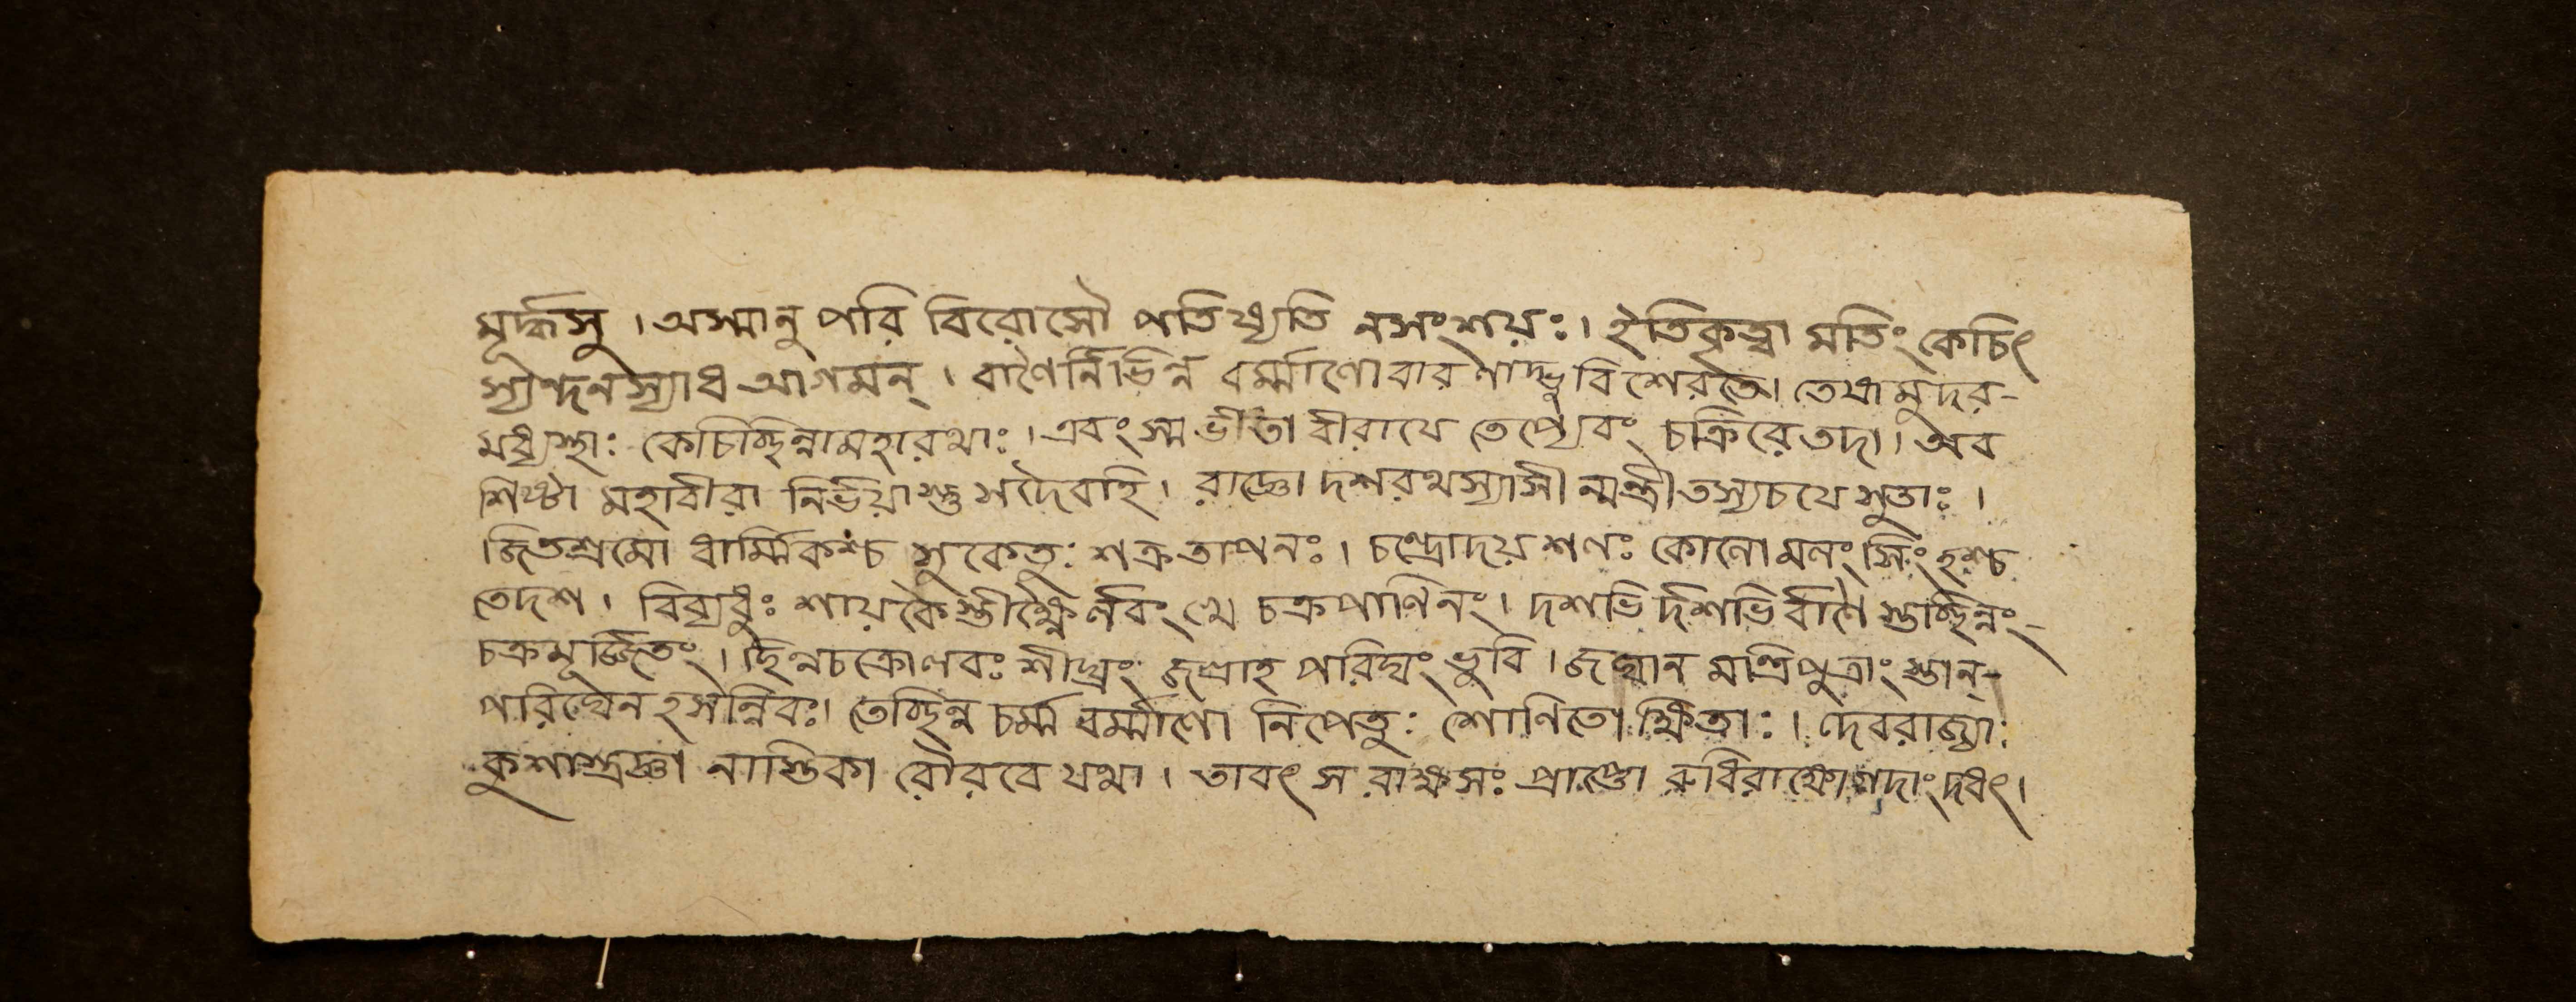 মূর্দ্ধসু । অস্মানু পরি বিরোসৌ পতিষ্যতি নসংশয়ঃ । ইতিকৃত্বা মতিং কেচিৎ
স্যন্দনস্যাধ আগমন্ । বাণৈর্নির্ভিন্ন বর্ম্মাণোবার ণাদ্ভুবি শেরতে। তেষামুদর-
মধ্যস্থাঃ কেচিচ্ছিন্নামহারথাঃ । এবং স্ম ভীতা বীরাযে তেপ্যেবং চক্রিরে তদা । অব
শিষ্টা মহাবীরা নির্ভয়াস্তু সদৈবহি । রাজ্ঞো দশরথস্যাসী ন্মন্ত্রীতস্যচযে সুতাঃ ।
জিতশ্রমো ধার্ম্মিকশ্চ সুকেতুঃ শক্রতাপনঃ । চন্দ্রোদয় শণঃ কোনো মনং সিংহশ্চ
তেদশ । বিব্যধুঃ শায়কৈস্তীক্ষ্ণৈ র্লবং চক্রপাণিনং । দশভি র্দশভি র্বাণৈ স্তচ্ছিন্নং-
চক্রমূর্জ্জিতং । ছিন্নচক্রোলবঃ শীঘ্রং জগ্রাহ পরিঘং ভুবি । জঘান মন্ত্রিপুত্রাং স্তান্-
পরিঘেন হসন্নিবঃ । তেচ্ছিন্ন চর্ম্ম বর্ম্মাণো নিপেতুঃ শোণিতো ক্ষিতাঃ । দেবরাজ্যাঃ
কুশাস্ত্রজ্ঞা নাস্তিকা রৌরবে যথা । তাবৎ স রাক্ষসঃ প্রাপ্তো রুধিরাক্ষোগদাং দধৎ ।